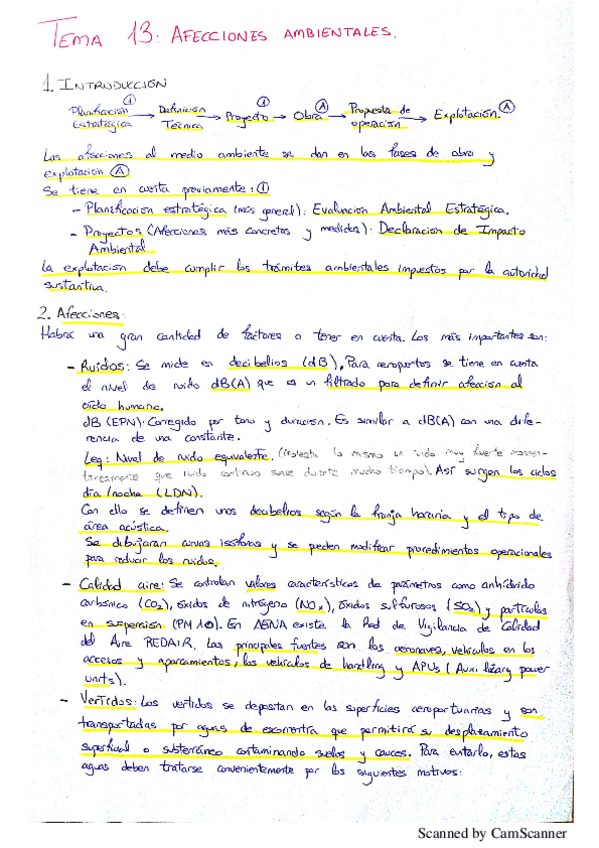 TEMA 13: AFECCIONES AMBIENTALES.
1. INTRODUCCIÓN
Planificación Estratégica ① → Definición Técnica → Proyecto ① → Obra Ⓐ → Propuesta de operación → Explotación. Ⓐ
Las afecciones al medio ambiente se dan en las fases de obra y
explotación Ⓐ
Se tiene en cuenta previamente: ①
- Planificación estratégica (más general): Evaluación Ambiental Estratégica.
- Proyectos (Afecciones más concretas y medidas): Declaración de Impacto
Ambiental
La explotación debe cumplir los trámites ambientales impuestos por la autoridad
sustantiva.
2. Afecciones:
Habrá una gran cantidad de factores a tener en cuenta. Los más importantes son:
- Ruidos: Se mide en decibelios (dB). Para aeropuertos se tiene en cuenta
el nivel de ruido dB(A) que es un filtrado para definir afección al
oído humano.
dB (EPN): Corregido por tono y duración. Es similar a dB(A) con una dife-
rencia de una constante.
Leq: Nivel de ruido equivalente. (Molesta lo mismo un ruido muy fuerte momen-
táneamente que ruido continuo suave durante mucho tiempo). Así surgen los ciclos
día/noche (LDN).
Con ello se definen unos decibelios según la franja horaria y el tipo de
área acústica.
Se dibujaran curvas isófonas y se pueden modificar procedimientos operacionales
para reducir los ruidos.
- Calidad aire: Se controlan valores característicos de parámetros como anhídrido
carbónico (CO₂), óxidos de nitrógeno (NOx), óxidos sulfurosos (SO₂) y partículas
en suspensión (PM10). En AENA existe la Red de Vigilancia de Calidad
del Aire REDAIR. Las principales fuentes son las aeronaves, vehículos en los
accesos y aparcamientos, los vehículos de handling y APUs (Auxiliary power
units).
- Vertidos: Los vertidos se depositan en las superficies aeroportuarias y son
transportadas por aguas de escorrentía que permitirá su desplazamiento
superficial o subterráneo contaminando suelos y cauces. Para evitarlo, estas
aguas deben tratarse convenientemente por los siguientes motivos:
Scanned by CamScanner